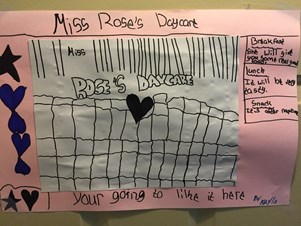 Miss Rose's Daycare
Miss
ROSE'S DAYCARE
Breakfast
She will give
you some
lunch
It will be
tasty.
Snack
It's after
your going to like it here
By